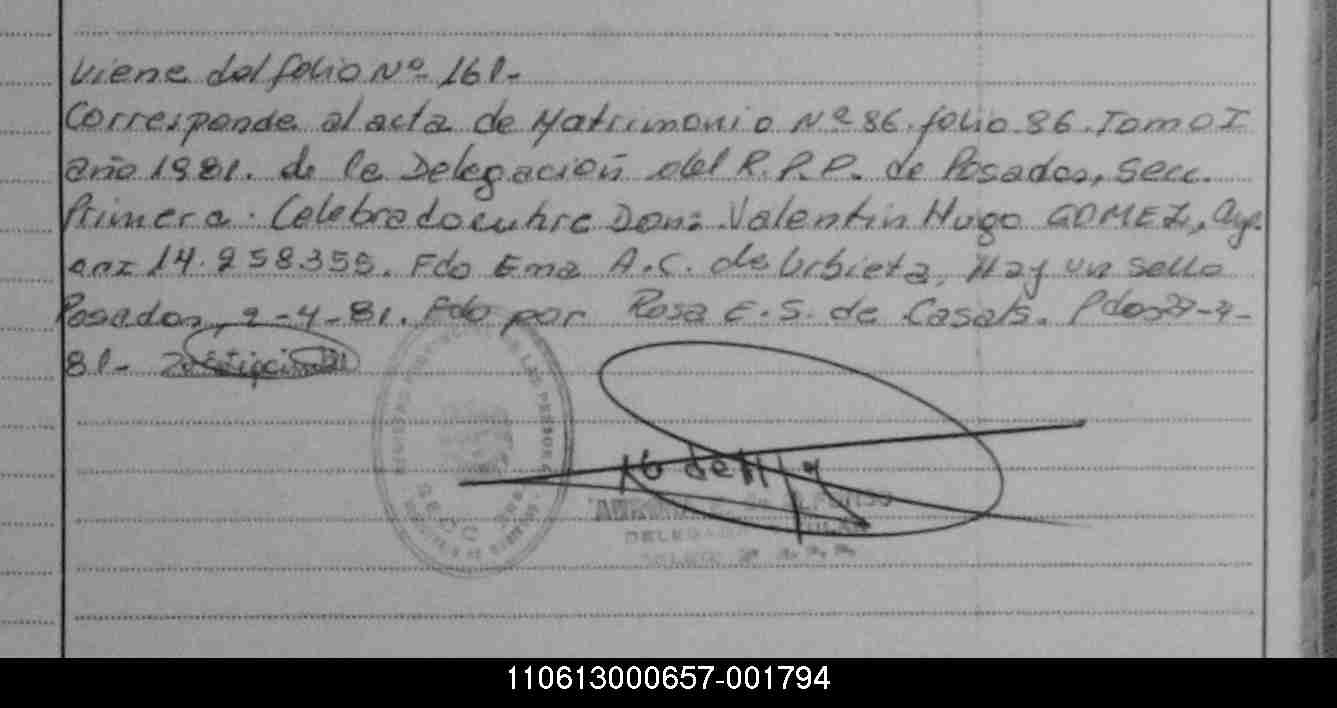 Viene del folio Nº 161.-
Corresponde al acta de Matrimonio Nº 86. folio 86. Tomo I
año 1981. de la Delegación del R.P.P. de Posadas, Secc.
Primera. Celebrado entre Don: Valentin Hugo GOMEZ, Arg.
14.258.355. Fdo Ema A.C. de Urbieta, Hay un sello
Posadas, 2-4-81. Fdo por Rosa E.S. de Casals. Pdas
81-
DE LAS PERSONAS
DELEGADA
110613000657-001794